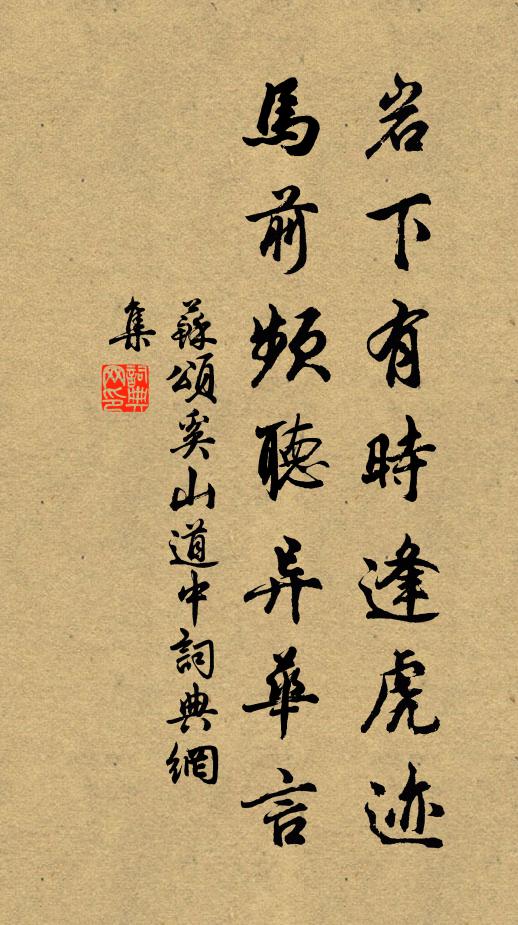 岩下有時逢虎迹
馬前頻聽异華言
蘇頌奚山道中詞典網
集
詞典
网印